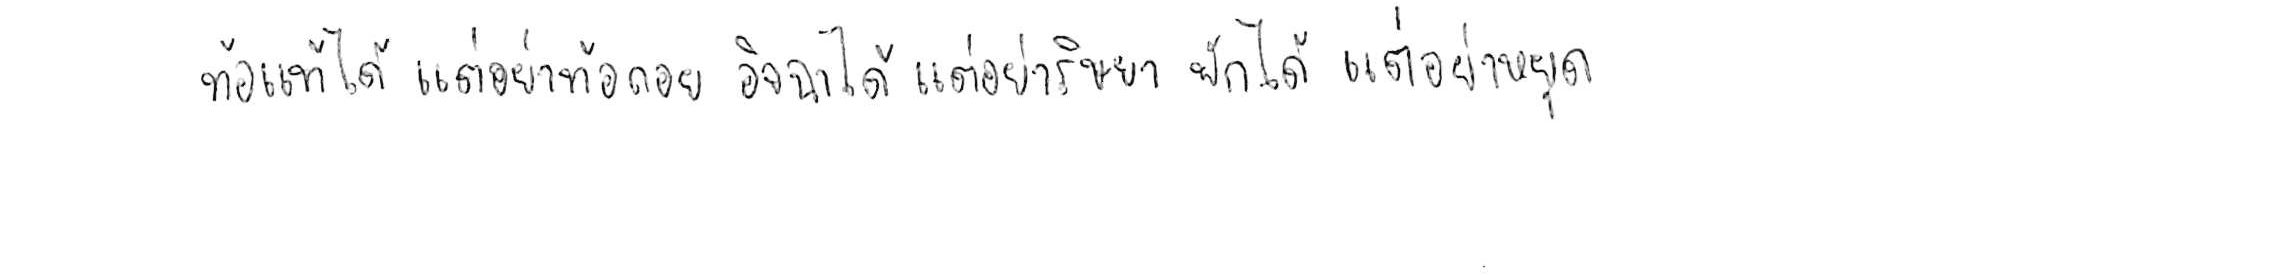 ท้อแท้ได้ แต่อย่าท้อถอย อิจฉาได้ แต่อย่าริษยา พักได้ แต่อย่าหยุด